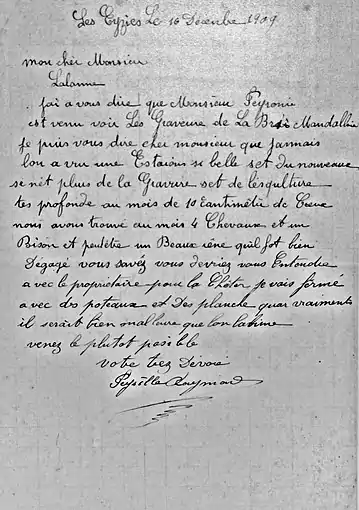 Les Eyzies Le 16 Décembre 1909
mon cher Monsieur
Lalanne
jai a vous dire que Monsieur Peyronie
est venu voir Les Gravure de La
je puis vous dire cher monsieur que Jamais
lon a vu une si belle set du nouveaux
se nèt plus de la Gravure set de lesqulture
tes profonde au mois de 10 de
nous avons trouvé au mois 4 Chevaux et un
Bison et peutètre un Beaux rène quil fot bien
Dégagé vous savéz vous devriez vous Entendre
avec le propriètaire pour la je vais fermé
avec des poteaux et Des planche quar vraiments
il serait bien malleure que lon labime
venez le plutot posible
vote trez Dévoué
Peyrille Raymond